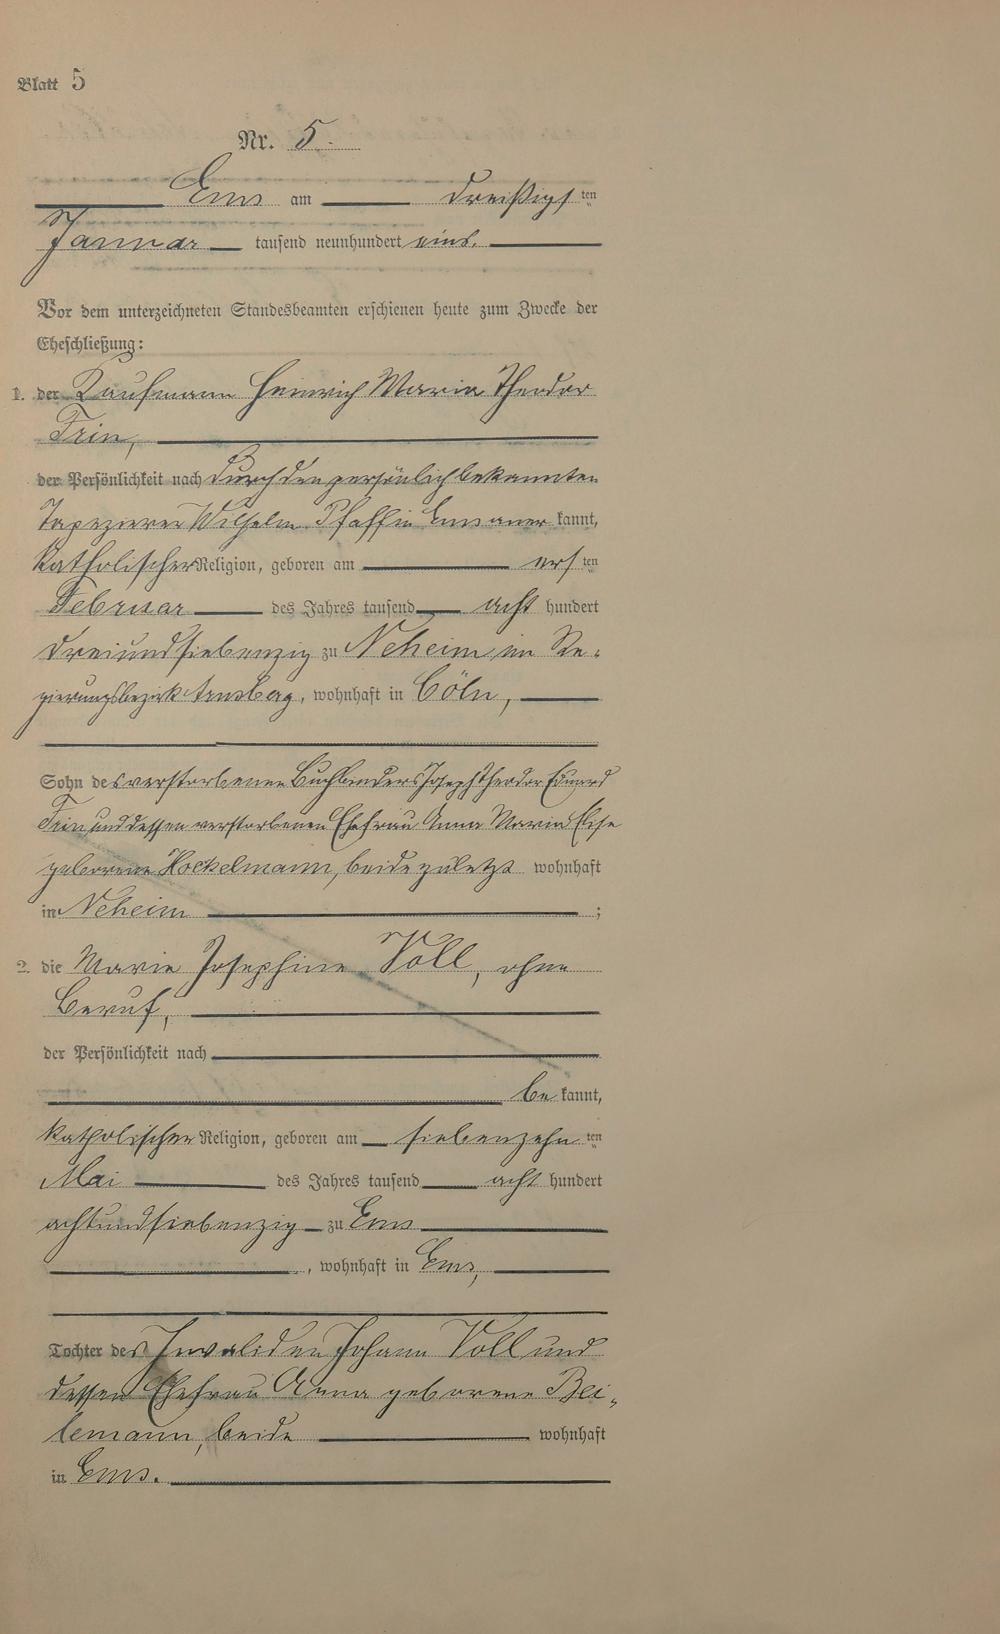 Blatt 5
Nr. 5.
Ems am dreißigsten
Januar tausend neunhundert eins.
Vor dem unterzeichneten Standesbeamten erschienen heute zum Zwecke der
Eheschließung:
1. der Kaufmann Heinrich Maria Theodor
Frin,
der Persönlichkeit nach durch den persönlich bekannten
Tapezierer Wilhelm Pfaff in Ems anerkannt,
katholischer Religion, geboren am ersten
Februar des Jahres tausend acht hundert
dreiundsiebenzig zu Neheim im Re-
gierungsbezirk Arnsberg, wohnhaft in Cöln,
Sohn des verstorbenen Buchbinders Joseph Theodor Eduard
Frin und dessen verstorbenen Ehefrau Anna Maria Elise
geborene Hockelmann, beide zuletzt wohnhaft
in Neheim ;
2. die Marie Josephine Voll, ohne
Beruf,
der Persönlichkeit nach
bekannt,
katholischer Religion, geboren am siebenzehnten
Mai des Jahres tausend acht hundert
achtundsiebenzig zu Ems
, wohnhaft in Ems,
Tochter des Invaliden Johann Voll und
dessen Ehefrau Anna geborene Bei-
lemann, beide wohnhaft
in Ems.